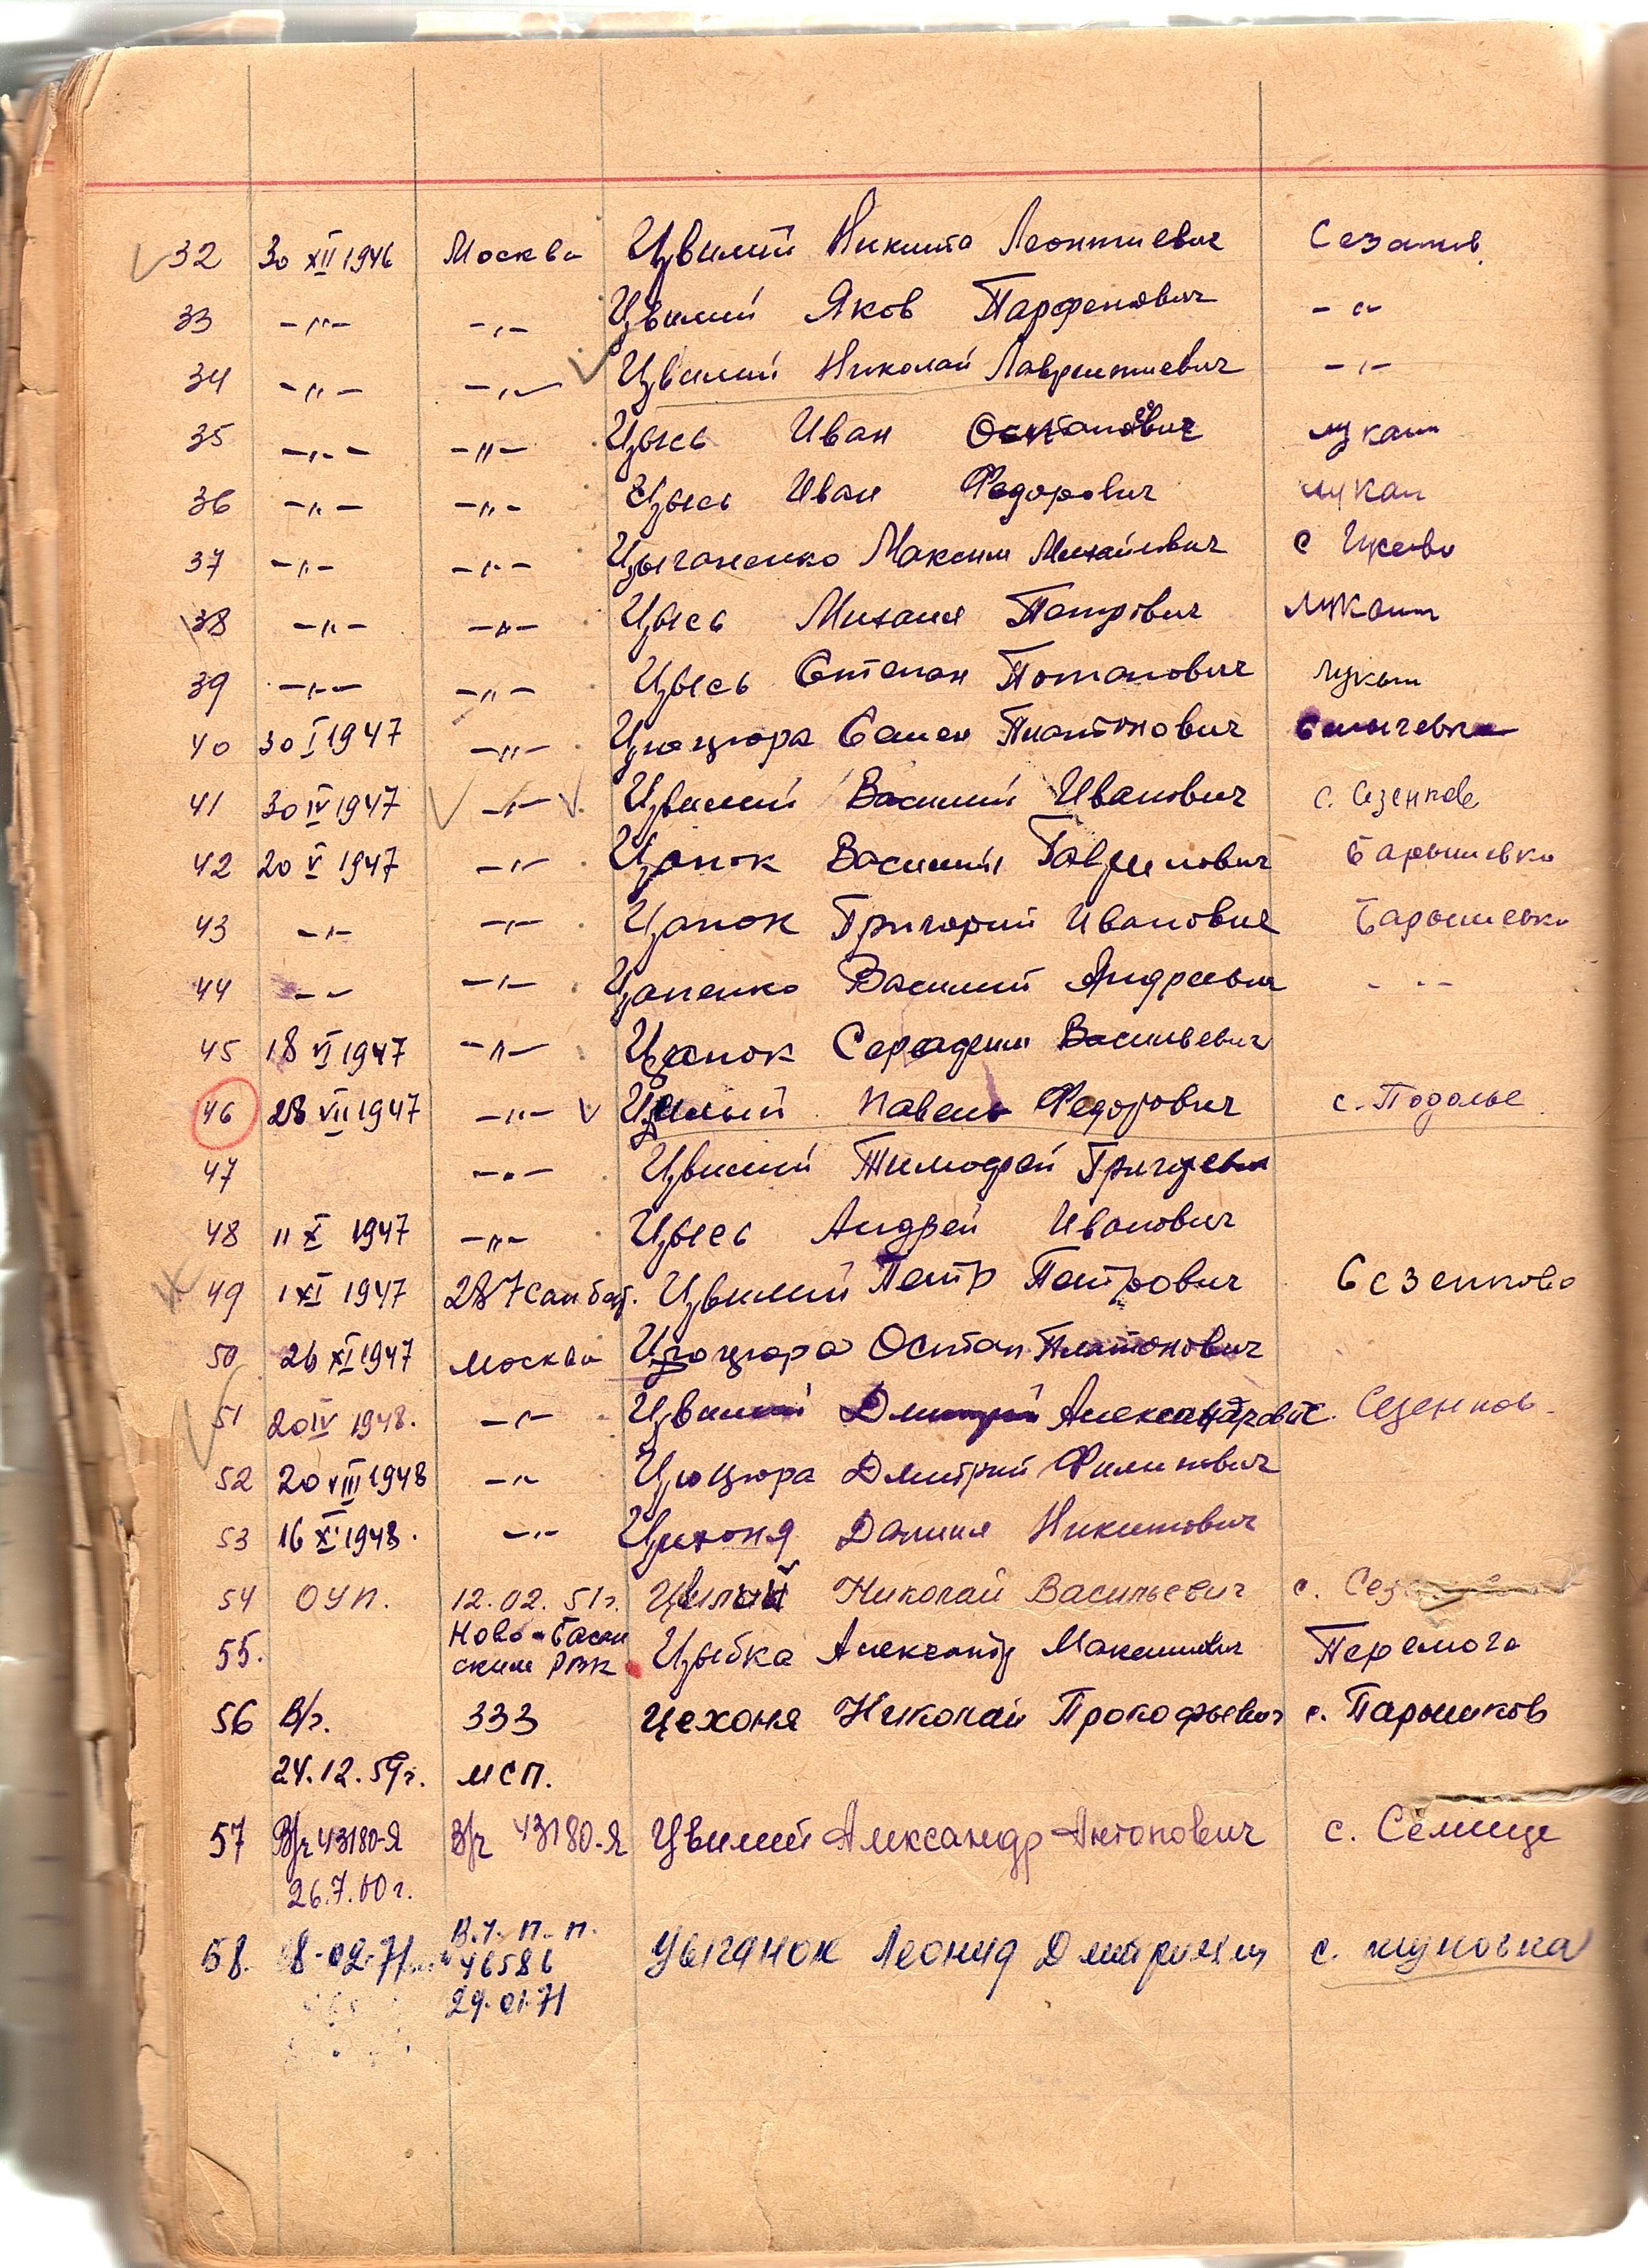 32 30 XII 1946 Москва Цвилий Никита Леонтиевич Сезанив.
33 -"- -"- Цвилий Яков Парфенович -"-
34 -"- -"- Цвилий Николай Лаврентиевич -"-
35 -"- -"- Цысь Иван Лукаш
36 -"- -"- Цысь Иван Федорович Лукаш
37 -"- -"- Цыганенко Максим Михайлович с
38 -"- -"- Цысь Михаил Петрович Лукаш
39 -"- -"- Цысь Степан Потапович Лукаш
40 30 I 1947 -"- Цюцюра Семен Платонович
41 30 IV 1947 -"- Цвилий Василий Иванович с.
42 20 V 1947 -"- Цапок Василий Гаврилович Барышевка
43 -"- -"- Цапок Григорий Иванович Барышевка
44 -"- -"- Цапенко Василий Андреевич - " -
45 18 VI 1947 -"- Цапок Серадеин Васильевич
46 28 VII 1947 -"- Цвилый Павель Федорович с. Подолье
47 -"- Цвилий Тимофей Григорьевич
48 11 X 1947 -"- Цысь Андрей Иванович
49 1 XI 1947 287 сан бат. Цвилий Петр Петрович Сезенково
50 26 XI 1947 Москва Цюцюра Остап Платонович
51 20 IV 1948. -"- Цвилий Дмитрий Александрович Сезенков
52 20 VIII 1948 -"- Цюцюра Дмитрий Филипович
53 16 XI 1948. -"- Цихоня Данил Никитович
54 ОУП. 12.02.51г. Цвилый Николай Васильевич с.
55. Ново-Басан
ским РВК Цыбка Александр Максимович Перемога
56 В/г. 333 Цехоня Николай Прокофьевич с. Парышков
24.12.59г. МСП.
57 В/ч 43180-Я В/ч 43180-Я Цвилий Александр Антонович с. Селище
26.7.60г.
58. 8-02-71 В.Ч. П. П. Цыганок Леонид с.
46586
29.01.71